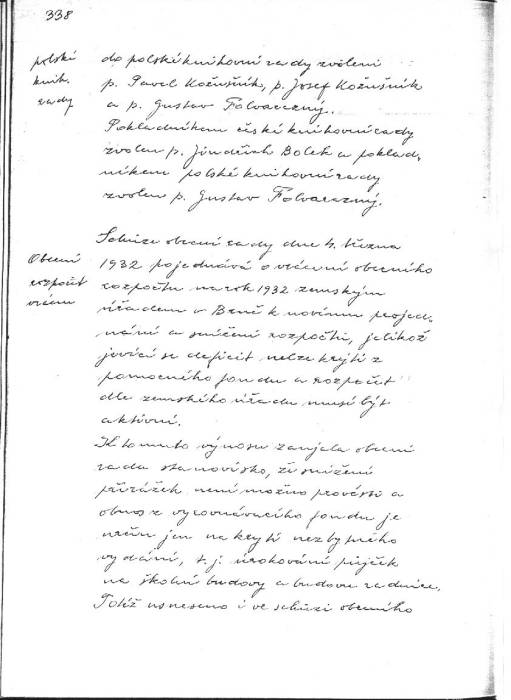 338
polské
knih.
rady
do polské knihovní rady zvoleni
p. Pavel Kožušník, p. Josef Kožušník
a p. Gustav Folvarczný.
Pokladníkem české knihovní rady
zvolen p. Jindřich Bolek a poklad-
níkem polské knihovní rady
zvolen p. Gustav Folvarczný.
Obecní
rozpočet
vrácen
Schůze obecní rady dne 4. března
1932 pojednává o vrácení obecního
rozpočtu na rok 1932 zemským
úřadem v Brně k novému projed-
nání a snížení rozpočtu, jelikož
jevící se deficit nelze krýti z
pomocného fondu a rozpočet
dle zemského úřadu musí být
aktivní.
K tomuto výnosu zaujala obecní
rada stanovisko, že snížení
přirážek není možno provésti a
obnos z vyrovnávacího fondu je
určen jen na krytí nezbytného
vydání, t. j. úrokování půjček
na školní budovy a budovu radnice.
Totéž usneseno i ve schůzi obecního